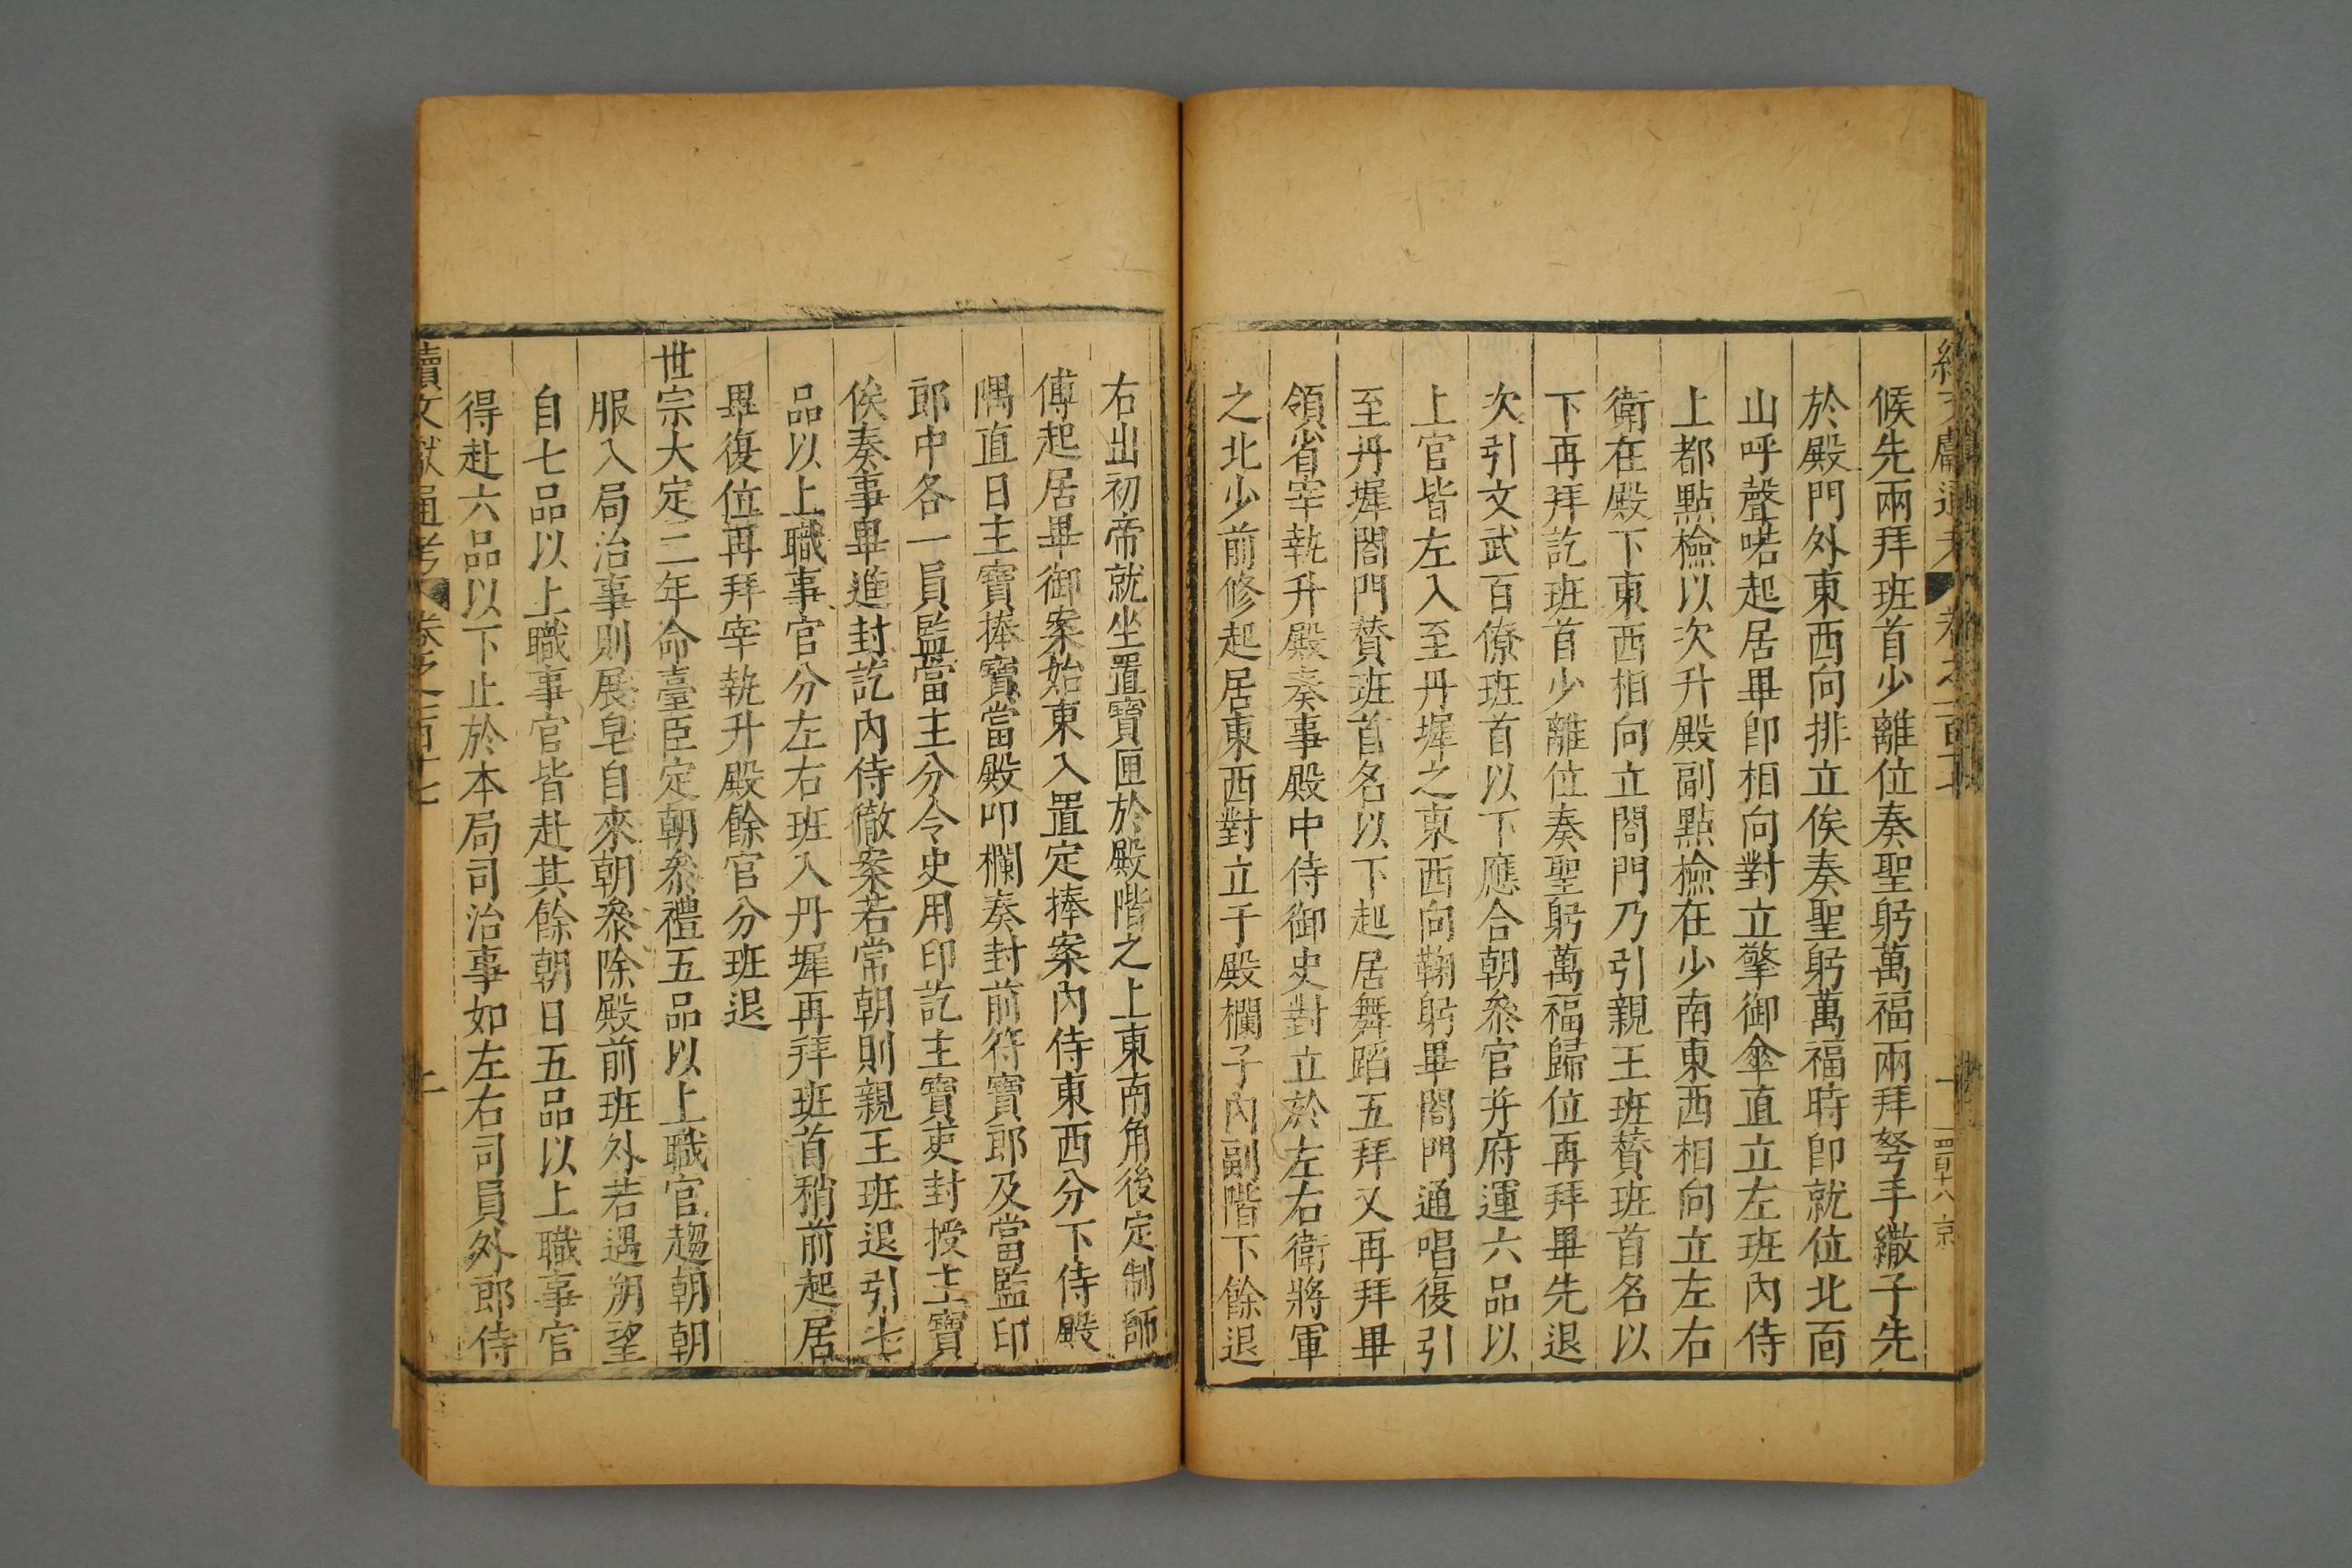 候先兩拜班首少離位奏聖躬萬福兩拜弩手繖子先
於殿門外東西向排立俟奏聖躬萬福時卽就位北面
山呼聲喏起居畢卽相向對立擎御傘直立左班內侍
上都點檢以次升殿副點檢在少南東西相向立左右
衛在殿下東西相向立閤門乃引親王班贊班首名以
下再拜訖班首少離位奏聖躬萬福歸位再拜畢先退
次引文武百僚班首以下應合朝叅官幷府運六品以
上官皆左入至丹墀之東西向鞠躬畢閤門通唱復引
至丹墀閤門贊班首名以下起居舞蹈五拜又再拜畢
領省宰執升殿奏事殿中侍御史對立於左右衛將軍
之北少前修起居東西對立于殿欄子內副階下餘退
右出初帝就坐置寶匣於殿階之上東南角後定制師
傅起居畢御案始東入置定捧案內侍東西分下侍殿
隅直日主寶捧寶當殿叩欄奏封前符寶郎及當監印
郎中各一員監當主分令史用印訖主寶吏封授主寶
俟奏事畢進封訖內侍徹案若常朝則親王班退引七
品以上職事官分左右班入丹墀再拜班首稍前起居
畢復位再拜宰執升殿餘官分班退
世宗大定二年命臺臣定朝叅禮五品以上職官趨朝朝
服入局治事則展皂自來朝叅除殿前班外若遇朔望
自七品以上職事官皆赴其餘朝日五品以上職事官
得赴六品以下止於本局司治事如左右司員外郎侍
續文獻通考 卷之一百十七